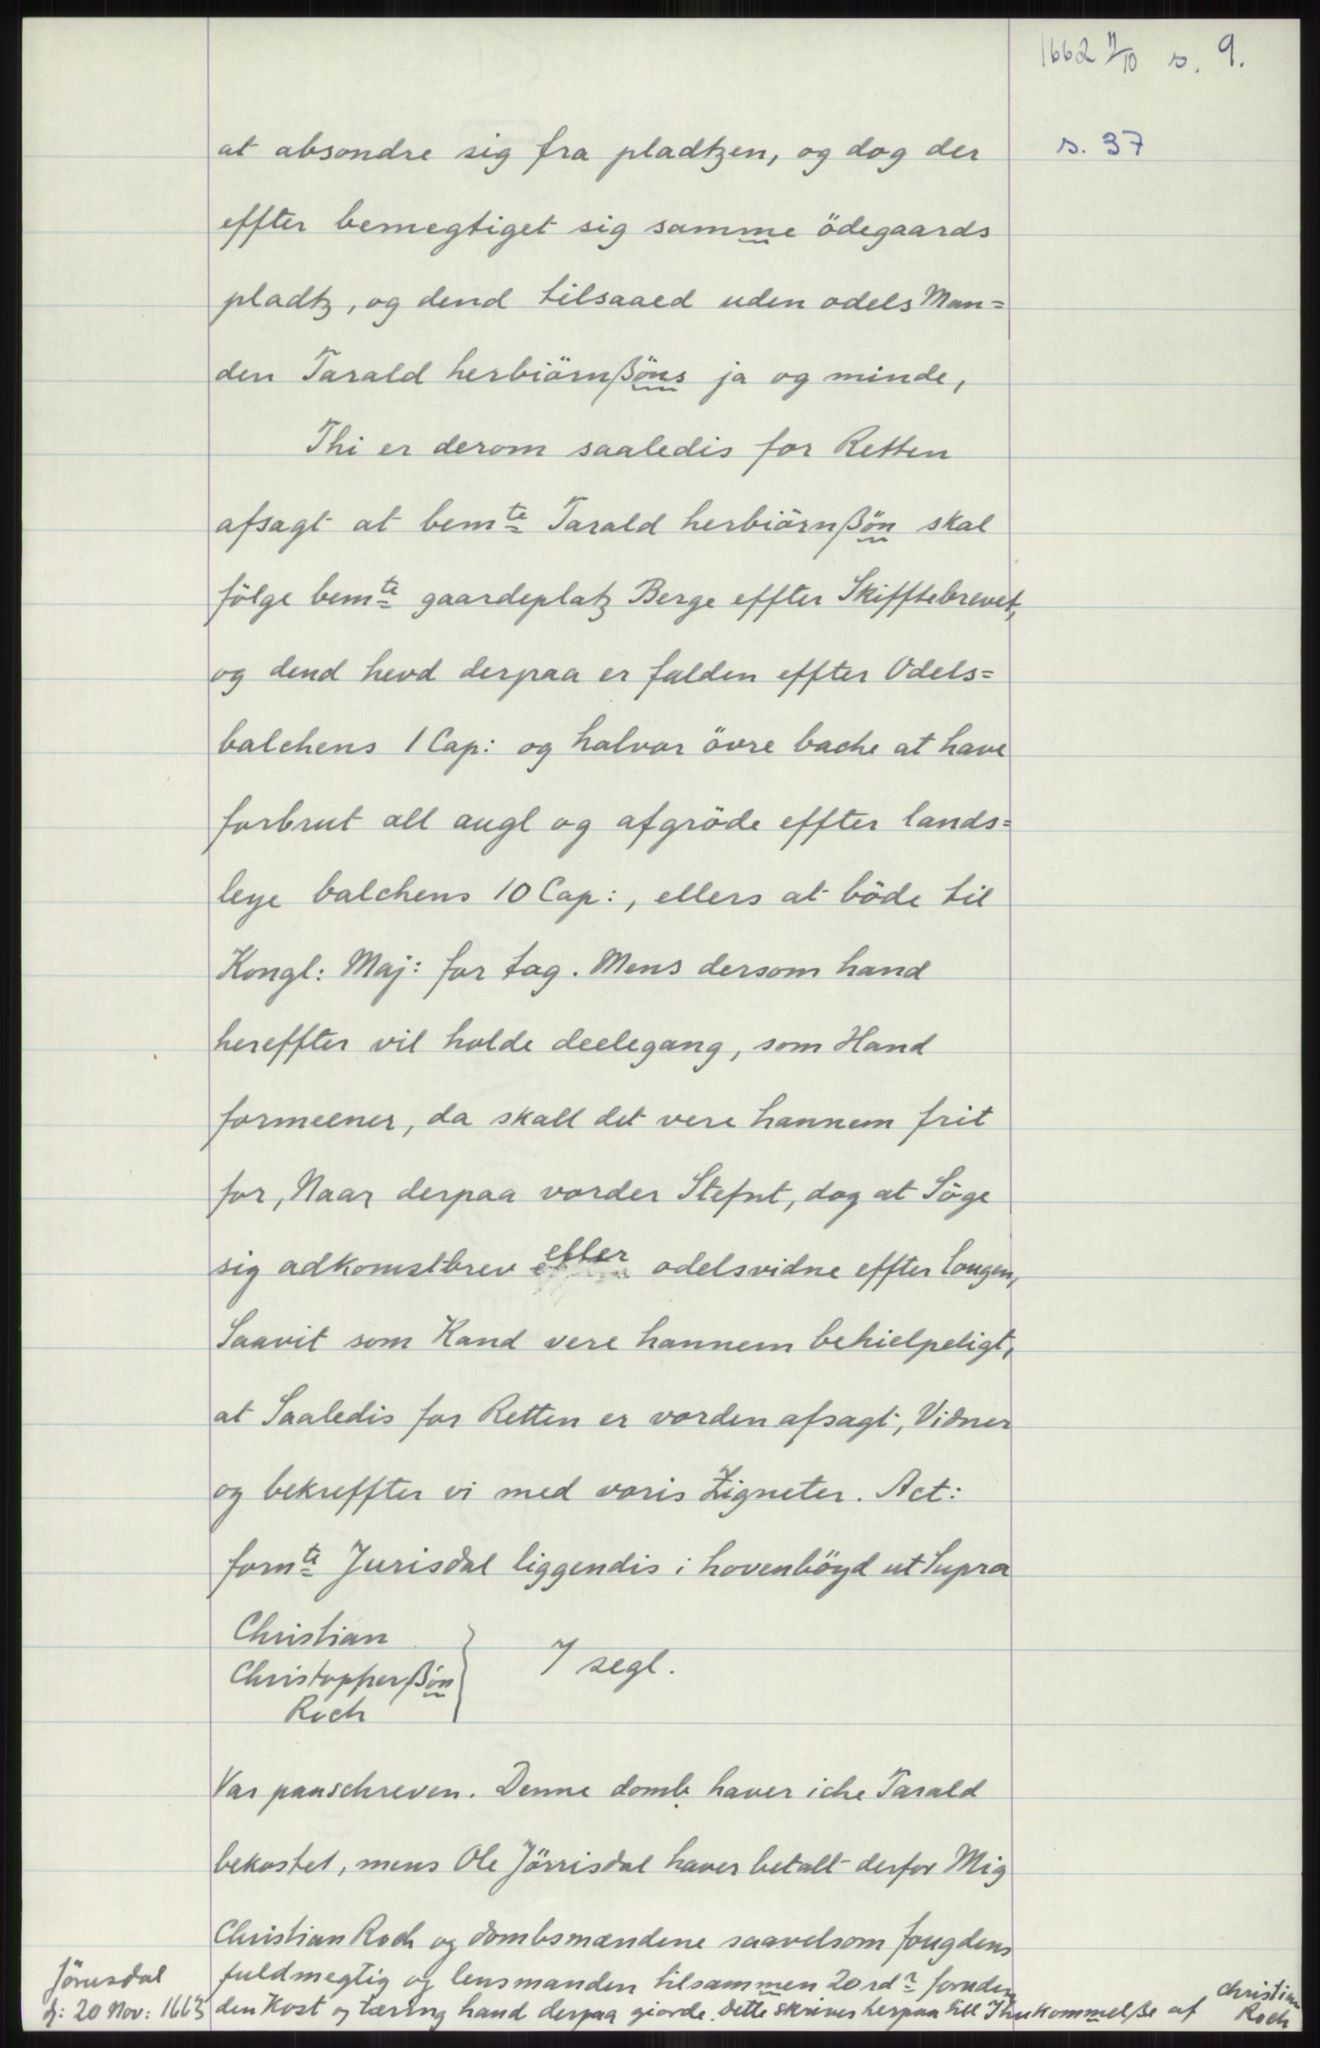 1662 11/10 s. 9.
s. 37
at absondre sig fra pladtzen, og dog der
effter bemegtiget sig samme ödegaards
pladtz, og dend tilsaaed uden odels Man=
den Tarald herbiörnßöns ja og minde,
Thi er derom saaledis for Retten
afsagt at bemte Tarald herbiörnßön skal
fölge bemte gaardeplatz Berge effter Skifftebrevet,
og dend hevd derpaa er falden effter Odels=
balchens 1 Cap: og halvor övre bache at have
forbrut all augl og afgröde effter lands=
leye balchens 10 Cap:, ellers at böde til
Kongl: Maj: for tag. Mens dersom hand
hereffter vil holde deelegang, som Hand
formeener, da skall det vere hannem frit
for, Naar derpaa vorder Stefnt, dog at Söge
sig adkomstbrev eller odelsvidne effter lougen,
Saavit som Kand vere hannem behielpeligt,
at Saaledis for Retten er vorden afsagt, Vidner
og bekreffter vi med voris Zigneter. Act:
fornte Jurisdal liggendis i hovenböyd ut Supra
Christian
Christopperßön
Roch
7 segl.
Var paaschreven. Denne domb haver iche Tarald
bekostet, mens Ole Jörrisdal haver betalt derfor Mig
Christian Roch og dombsmændene saavelsom fougdens
fuldmegtig og lensmanden tilsammen 20 rdr foruden
den Kost og tæring hand derpaa giorde. Dette skrives herpaa till Ihukommelße af
Christian
Roch
Jörusdal
d: 20 Nov: 1663